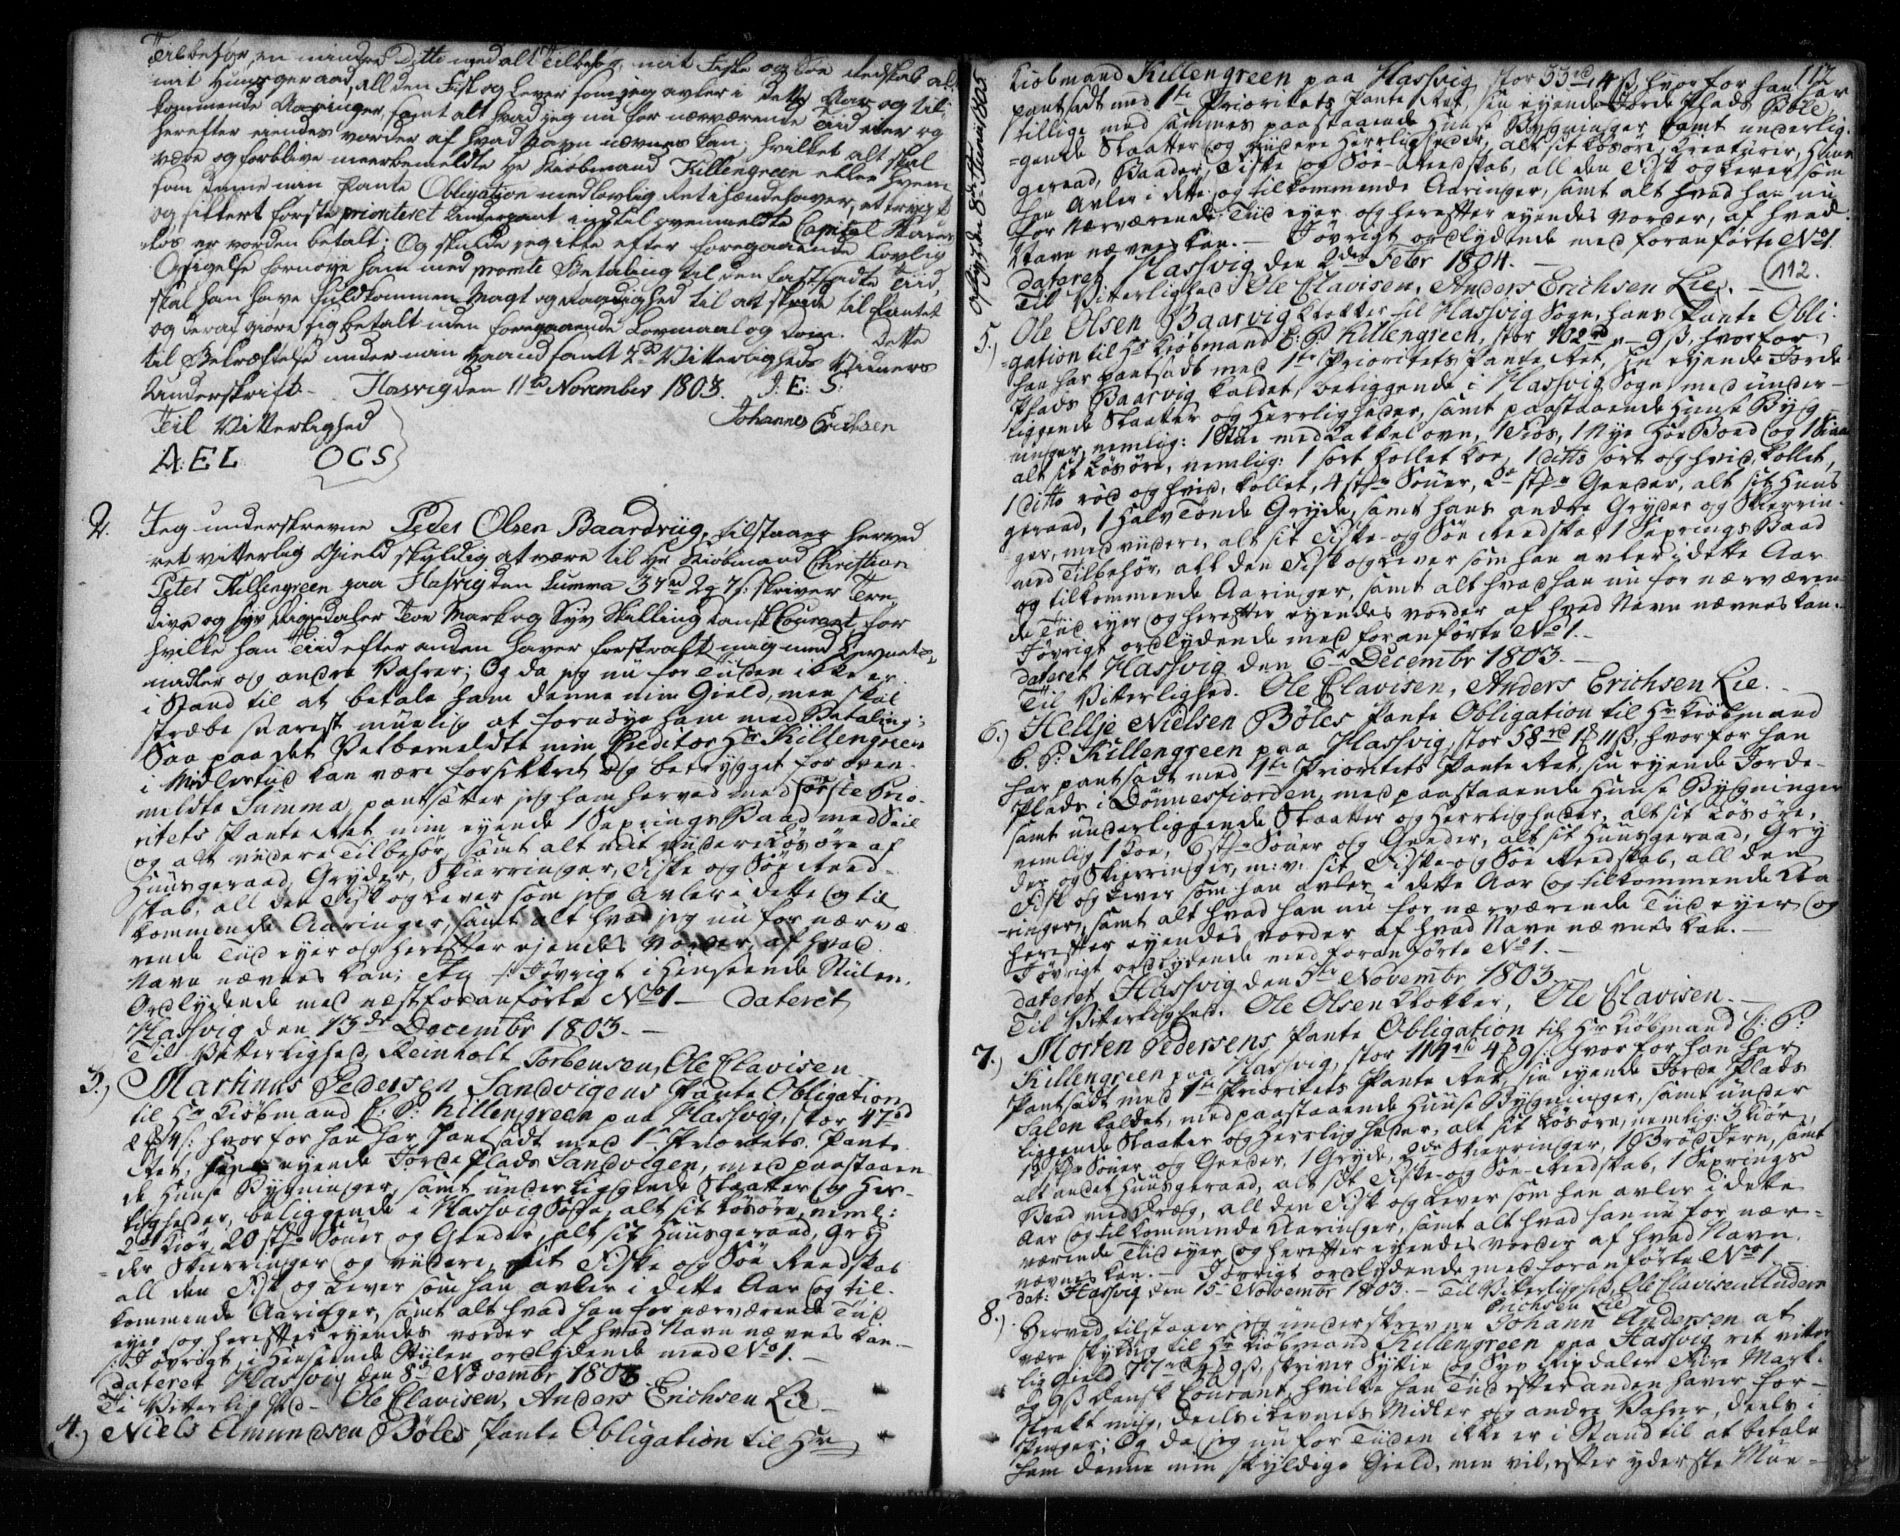 Tilbehør, en mindre Ditto med alt Tilbehør, mit Fiske og Søe Redskab al
mit Huusgeraad, all den Fisk og Lever som jeg avler i dette Aar og til-
kommende Aaringer, samt alt hvad jeg nu for nærværende Tiid eier og
herefter eiendes vorder af hvad Navn nævnes kan, hvilket alt skal
være og forblive meerbemeldte Hr Kiøbmand Killengreen eller hvem
som denne min Pante Obligation med lovlig Ret ihændehaver, et trygt
og sikkert første prioriteret Underpant indtil ovenmeldte Capital skades
løs er vorden betalt; Og skulde jeg ikke efter foregaaende Lovlig
Opsigelse fornøye ham med promte Betaling til den fastsadte Tiid,
skal han have fuldkommen Magt og raadighed til at skride til Pantet
og deraf giøre sig betalt uden foregaaende Lovmaal og Dom. Dette
til Bekræftelse under min Haand samt 2de Vitterligheds Vidners
Underskrift. Hasvig den 11te November 1803. J: E: S:
Til Vitterlighed Johannes Erichsen
A:E:L OCS
2. Jeg underskrevne Peder Olsen Baardviig, tilstaaer herved
ret vitterlig Gield skyldig at være til Hr Kiøbmand Christian
Peter Killengreen paa Hasvig den Summa 37rd 2 7s: skriver Tre-
dive og syv Rigsdaler Toe Mark og Syv Skilling dansk Courant, for
hvilke han Tiid efter anden haver forstrakt mig med Levnets-
midler og andre Vahrer; Og da jeg nu for Tiiden ikke er
i Stand til at betale ham denne min Gield, men skal
stræbe snarest muelig at fornøye ham med Betaling;
Saa paa det Velbemeldte min Creditor Hr Killengreen
i Midlertiid kan være forsikkret og betrygget for oven-
meldte Summa, pantsætter jeg ham herved med første Prio-
ritets Pante Ret min eyende 1 Seprings Baad med Seil
og alt viidere Tilbehør, samt alt mit viidere Løsøre af
Huusgeraad, Gryder, Skierringer, Fiske og Søe Reed-
skab, all den Fisk og Lever som jeg avler i dette og til
kommende Aaringer, samt alt hvad jeg nu for nærvæ-
rende Tiid eyer og herefter ejendes vorder, af hvad
Navn nævnes kan; Jøvrigt i Henseende Stiilen,
Ordlydende med næst foranførte No 1 — dateret
Hassvig den 13de Decembr 1803. —
Til Vitterlighed, Reinholt Torbensen, Ole Clavisen
3.) Martinus Pedersen Sandvigens Pante Obligation
til Hr Kiøbmand C: P: Killengreen paa Hassvig, stor 47rd
2 4s: hvorfor han har Pantsadt med 1te Prioritets Pante
Ret, sin eyende Jorde Plads Sandvigen, med paastaaen
de Huuse Bygninger, samt underliggende Skatter og Her-
ligheder, beliggende i Hassvig Sogn, alt sit Løsøre, neml:
2de Kiør, 20 stk Søuer og Geeder, alt sit Huusgeraad, Gry
der Skierringer og viidere, sit Fiske og Søe Reedskab
all den Fisk og Lever som han avler i dette Aar og til-
kommende Aaringer, samt alt hvad han for nærværende Tiid
eyer og herefter eyendes vorder af hvad Navn nævnes kan —
Jøvrigt, i Henseende Stiilen ordlydende med No 1. —
dateret Hassvig den 8de Novembr 1803.
Til Vitterlighed — Ole Clavisen, Anders Erichsen Lie —
4.) Niels Elmundsen Bøles Pante Obligation til Hr
112
Kiøbmand Killengreen paa Hassvig, stor 33rd, 4ß hvorfor han har
pantsadt med 1te Prioritets Pante Ret, sin eyende Jorde Plads Bøle
tillige med sammes paastaaende Huuse Bygninger samt underlig-
gende Skatter og viidere Herrligheder, alt sit Løsøre, Kreaturer, Huus
geraad, Baader, Fiske og Søe-Reedskab, all den Fisk og Lever som
han avler i dette og tilkommende Aaringer, samt alt hvad han nu
for nærværende Tiid eyer og herefter eyendes vorder, af hvad
Navn nævnes kan. — Jøvrigt ordlydende med foranførte No 1.
dateret Hassvig den 2den Febr 1804. —
Til Vitterlighed Ole Clavisen, Anders Erichsen Lie. — 112.
5.) Ole Olsen Baarvig Klokker til Hassvig Sogn, hans Pante Obli-
gation til Hr Kiøbmand C: P: Killengreen, stor 102rd — 9ß, hvorfor
han har pantsadt med 1te Prioritets Pante Ret, sin eyende Jorde
Plads Baarvig kaldet, beliggende i Hassvig Sogn, med under-
liggende Skatter og Herrligheder, samt paastaaende Huuse Byg-
ninger, nemlig: 1 Stue med Kakkelovn, 1 Fiøs, 1 Nye Søe Boed og 1
alt sit Løsøre, nemlig: 1 sort kollet Koe, 1 ditto sort og hvid kollet,
1 ditto rød og hvid, kollet, 4 stk Søuer, 2 stk Geeder, alt sit Huus
geraad, 1 halv Tønde Gryde, samt hans andre Gryder og Skierrin-
ger, med viidere, alt sit Fiske- og Søe Reedskab, 1 Seprings Baad
med Tilbehør, all den Fisk og Lever som han avler i dette Aar
og tilkommende Aaringer, samt alt hvad han nu for nærværen-
de Tiid eyer og herefter eyendes vorder af hvad Navn nævnes kan.
Jøvrigt ordlydende med foranførte No 1. —
dateret Hassvig den 6te Decembr 1803. —
Til Vitterlighed. Ole Clavisen, Anders Erichsen Lie.
6.) Hellje Nielsen Bøles Pante Obligation til Hr Kiøbmand
C. P: Killengreen paa Hassvig, stor 58rd 1 11ß, hvorfor han
har pantsadt med 1te Prioritets Pante Ret, sin eyende Jorde-
Plads i Dønnesfiorden, med paastaaende Huuse Bygninger
samt underliggende Skatter og Herrligheder, alt sit Løsøre,
nemlig 1 Koe, 6 stk Søuer og Geeder, alt sit Huusgeraad, Gry
der og Skierringer, m: v: sit Fiske- og Søe Reedskab, all den
Fisk og Lever som han avler i dette Aar og tilkommende Aa
-ringer, samt alt hvad han nu for nærværende Tiid eyer og
herefter eyendes vorder af hvad Navn nævnes kan. —
Jøvrigt ordlydende med foranførte No 1. —
dateret Hassvig den 5te Novembr 1803
Til Vitterlighed. Ole Olsen Klokker, Ole Clavisen. —
7.) Morten Pedersens Pante Obligation til Hr Kiøbmand C: P:
Killengreen paa Hassvig, stor 114rd 4 9s: hvorfor han har
Pantsadt med 1te Prioritets Pante Ret, sin eyende Jorde Plads
Salen kaldet, med paastaaende Huuse Bygninger, samt under
liggende Skatter og Herrligheder, alt sit Løsøre, nemlig: 3 Kiør,
stk Søuer og Geeder, 1 Gryde, 2de Skierringer, 1 Brød Jern, samt
alt andet Huusgeraad, alt sit Fiske- og Søe-Reedskab, 1 Seprings
Baad med Dræg, all den Fisk og Lever som han avler i dette
Aar og tilkommende Aaringer, samt alt hvad han nu for nær-
værende Tiid eyer og herefter eyendes vorder af hvad Navn
nævnes kan. — Jøvrigt ordlydende med foranførte No 1
dat: Hassvig den 15de Novembr 1803. — Til Vitterlighed, Ole Clavisen Anders
Erichsen Lie
8.) Herved tilstaaer jeg underskrevne Johann Andersen at
være skyldig til Hr Kiøbmand Killengreen paa Hassvig ret vitter
lig Gield 77rd 4 9ß, skriver Sytie og Syv Rigsdaler Fire Mark
og 9ß Dansk Courant, hvilke han Tiid efter anden haver for-
strakt mig, deels i Levnets Midler og andre Vahrer, deels i
Penger; Og da jeg nu for Tiiden ikke er i Stand til at betale
ham denne min skyldige Gield, men vil, efter yderste Mue-
Oplæst den 8de Junii 1805